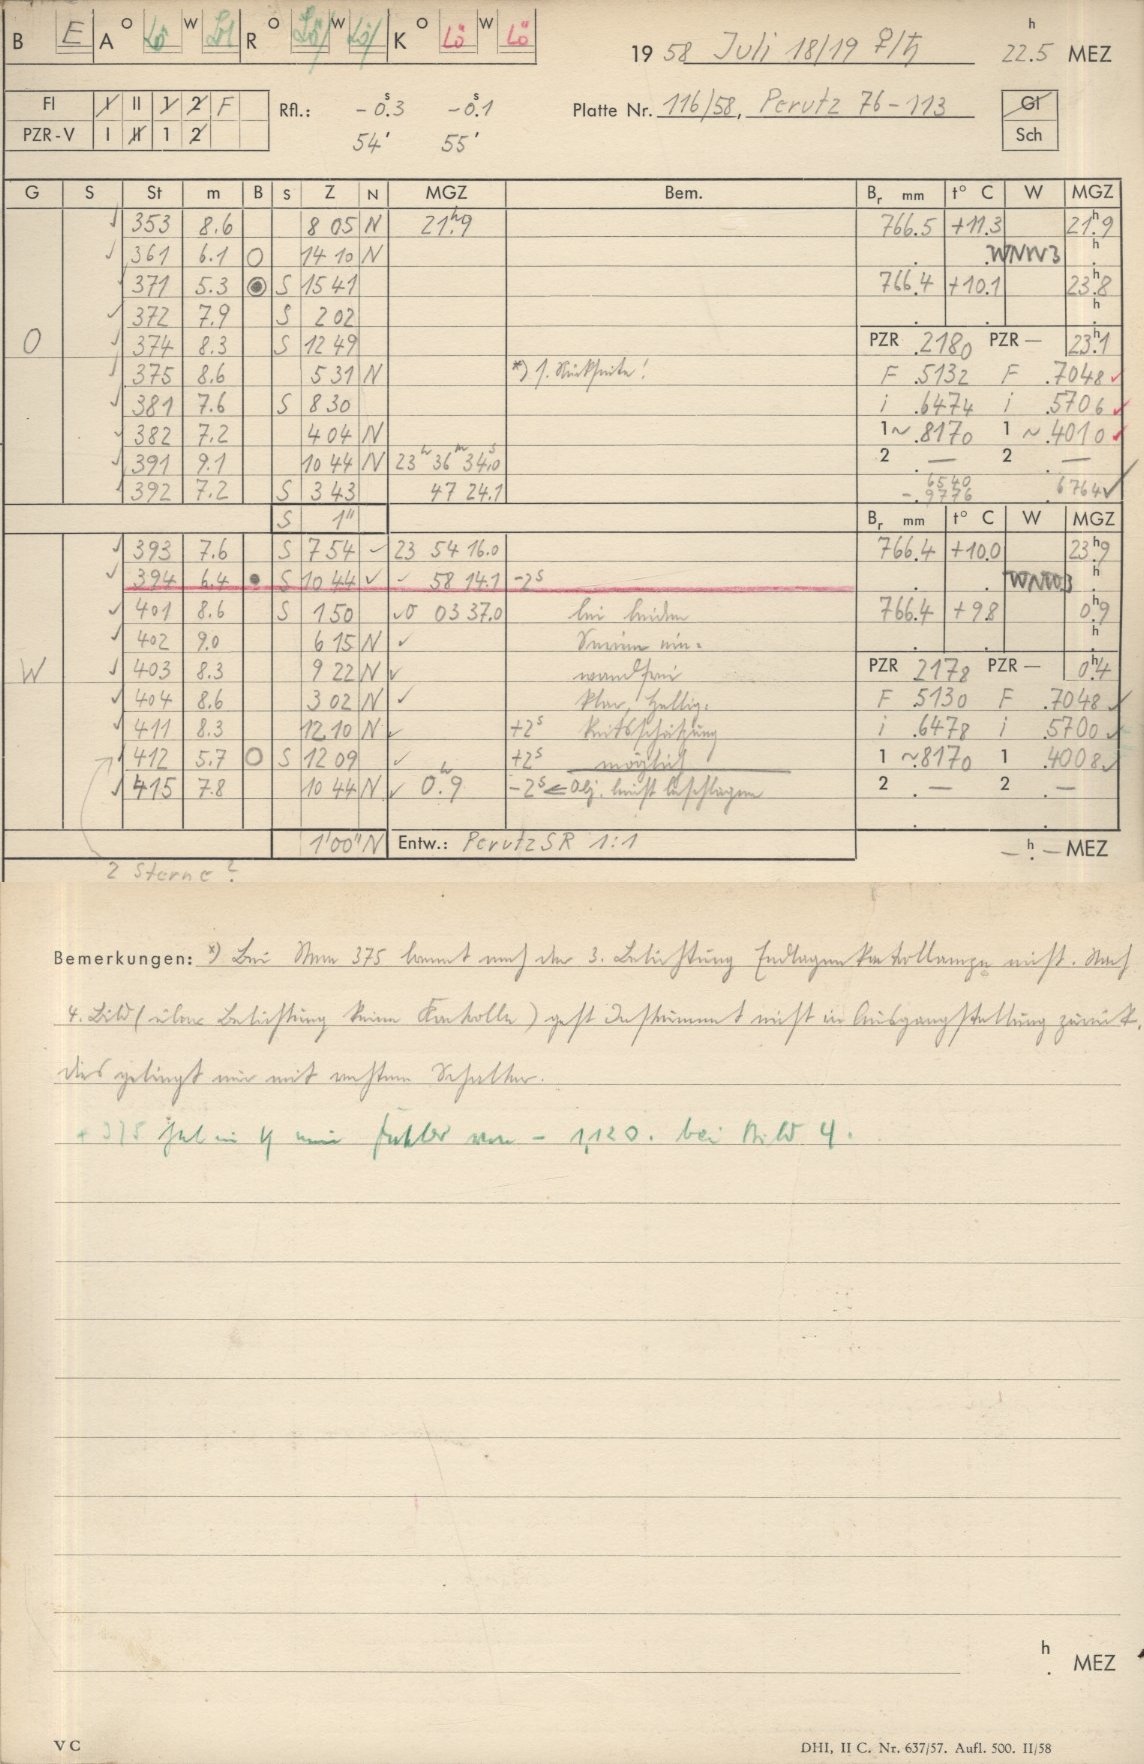 B E A O Lö W Bl R O Lö/ W Lö/ K O Lö W Lö
19 58 Juli 18/19 ♀/♄ 22.5 h MEZ
Fl I II 1 2 F
PZR-V I II 1 2
Rfl.: -0.3 s -0.1 s
54' 55'
Platte Nr. 116/58, Perutz 76-113
Gl
Sch
G S St m B S Z N MGZ Bem. Br mm t° C W MGZ
353 8.6 8 05 N 21.9 h 766.5 +11.3 21.9 h
361 6.1 O 14 10 N WNW3 h
371 5.3 S 15 41 766.4 +10.1 23.8
372 7.9 S 2 02 h
O 374 8.3 S 12 49 PZR .2180 PZR – 23.1 h
375 8.6 5 31 N *) s. Rückseite! F .5132 F .7048
381 7.6 S 8 30 i .6474 i .5706
382 7.2 4 04 N 1 ~.8170 1 ~.4010
391 9.1 10 44 N 23 h 36 m 34.0 s 2 . — 2 . —
392 7.2 S 3 43 47 24.1 6540 -.9776 .6764
S 1" Br mm t° C W MGZ
393 7.6 S 7 54 23 54 16.0 766.4 +10.0 23.9 h
394 6.4 S 10 44 58 14.1 -2 s WNW3 h
401 8.6 S 1 50 0 03 37.0 bei beiden 766.4 +9.8 0.9 h
402 9.0 6 15 N Serien ein= h
W 403 8.3 9 22 N wandfrei PZR 2178 PZR – 0.4 h
404 8.6 3 02 N klar, Hellig= F .5130 F .7048
411 8.3 12 10 N +2 s keitsschätzung i .6478 i .5700
412 5.7 O S 12 09 +2 s möglich 1 ~.8170 1 .4008
415 7.8 10 44 N 0.9 h -2 s ← Obj. leicht beschlagen 2 . — 2 . —
1'00" N Entw.: Perutz SR 1:1 – h – MEZ
2 Sterne?
Bemerkungen: *) Bei Stern 375 kommt nach der 3. Belichtung Endlagenkontrollampe nicht. Nach
4. Bild (über Belichtung keine Kontrolle) geht Instrument nicht in Ausgangstellung zurück,
dies gelingt nur mit rechtem Schalter.
* 375 hat in y einen Fehler von – 1,120. bei Bild 4.
h
. MEZ
VC
DHI, II C. Nr. 637/57. Aufl. 500. II/58